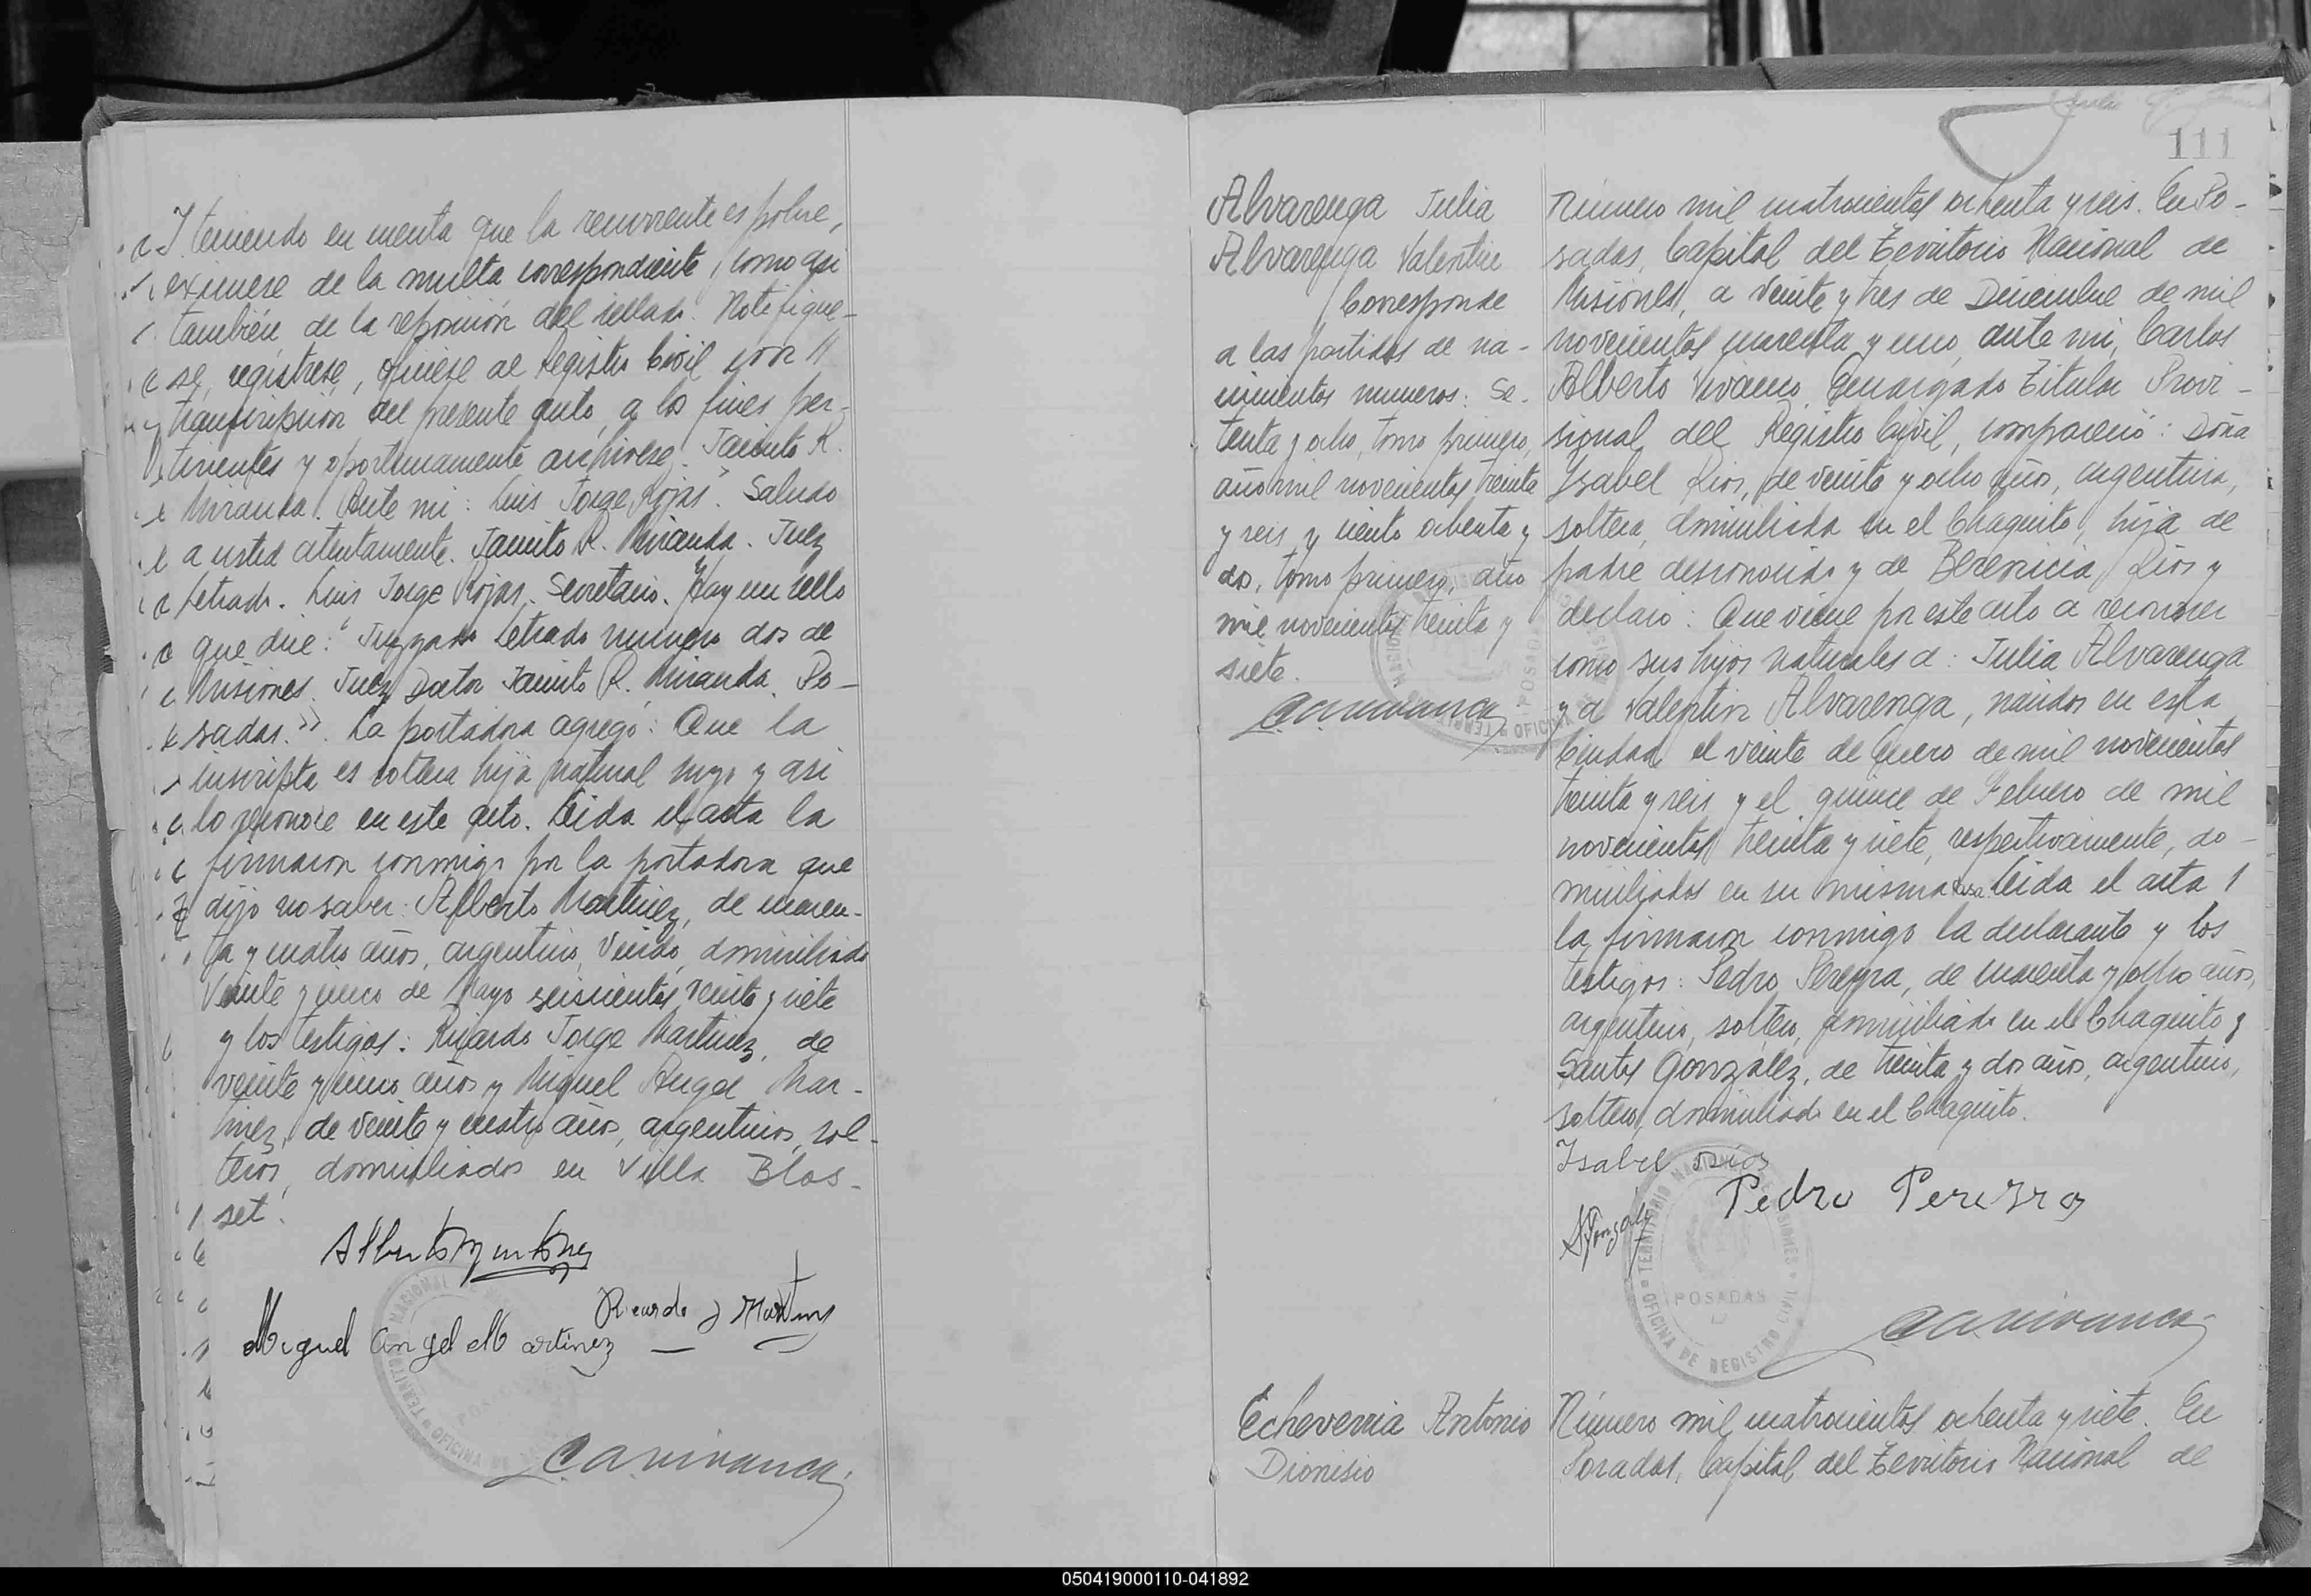 Y teniendo en cuenta que la recurrente es pobre,
eximese de la multa correspondiente, como asi
también de la reposición del sellado. Notifique-
se, regístrese, ofíciese al Registro Civil con
transcripción del presente auto, a los fines per-
tinentes y oportunamente archívese. Jacinto R.
Miranda. Ante mi: Luis Jorge Rojas". Saludo
a usted atentamente. Jacinto R. Miranda. Juez
Letrado. Luis Jorge Rojas. Secretario. Hay un sello
que dice: "Juzgado Letrado numero dos de
Misiones. Juez Doctor Jacinto R. Miranda. Po-
sadas.". La portadora agregó: Que la
inscripta es soltera hija natural suya y asi
lo reconoce en este acto. Leida el acta la
firmaron conmigo por la portadora que
dijo no saber: Alberto Martinez, de cuaren-
ta y cuatro años, argentino, viudo, domiciliado
Veinte y cinco de Mayo seiscientos veinte y siete
y los testigos: Ricardo Jorge Martinez, de
veinte y años y Miguel Angel Mar-
tinez, de veinte y cuatro años, argentinos, sol-
teros, domiciliados en Villa Blos-
set.
Miguel Angel Martinez
Ricardo J Martinez
CAVivanco
111
Alvarenga Julia
Alvarenga Valentin
Corresponde
a las partidas de na-
cimientos numeros: Se-
tenta y ocho, tomo primero,
año mil novecientos treinta
y seis y ciento ochenta y
dos, tomo primero, año
mil novecientos treinta y
siete.
CAVivanco
Número mil cuatrocientos ochenta y seis. En Po-
sadas, Capital del Territorio Nacional de
Misiones, a veinte y tres de Diciembre de mil
novecientos cuarenta y uno, ante mi, Carlos
Alberto Vivanco, Encargado Titular Provi-
sional del Registro Civil, compareció: Doña
Ysabel Rios, de veinte y ocho años, argentina,
soltera, domiciliada en el Chaquito, hija de
padre desconocido y de Berenicia Rios y
declaró: Que viene por este acto a reconocer
como sus hijos naturales a: Julia Alvarenga
y a Valentin Alvarenga, nacidos en esta
Ciudad el veinte de Enero de mil novecientos
treinta y seis y el quince de Febrero de mil
novecientos treinta y siete, respectivamente, do-
miciliados en su misma casa. Leida el acta
la firmaron conmigo la declarante y los
testigos: Pedro Pereyra, de cuarenta y ocho años,
argentino, soltero, domiciliado en el Chaquito y
Santos González, de treinta y dos años, argentino,
soltero, domiciliado en el Chaquito.
Isabel rios
Pedro Pereyra
TERRITORIO NACIONAL DE MISIONES
POSADAS
OFICINA DE REGISTRO CIVIL
CAVivanco
Echeverria Antonio
Dionisio
Número mil cuatrocientos ochenta y siete. En
Posadas, Capital del Territorio Nacional de
050419000110-041892